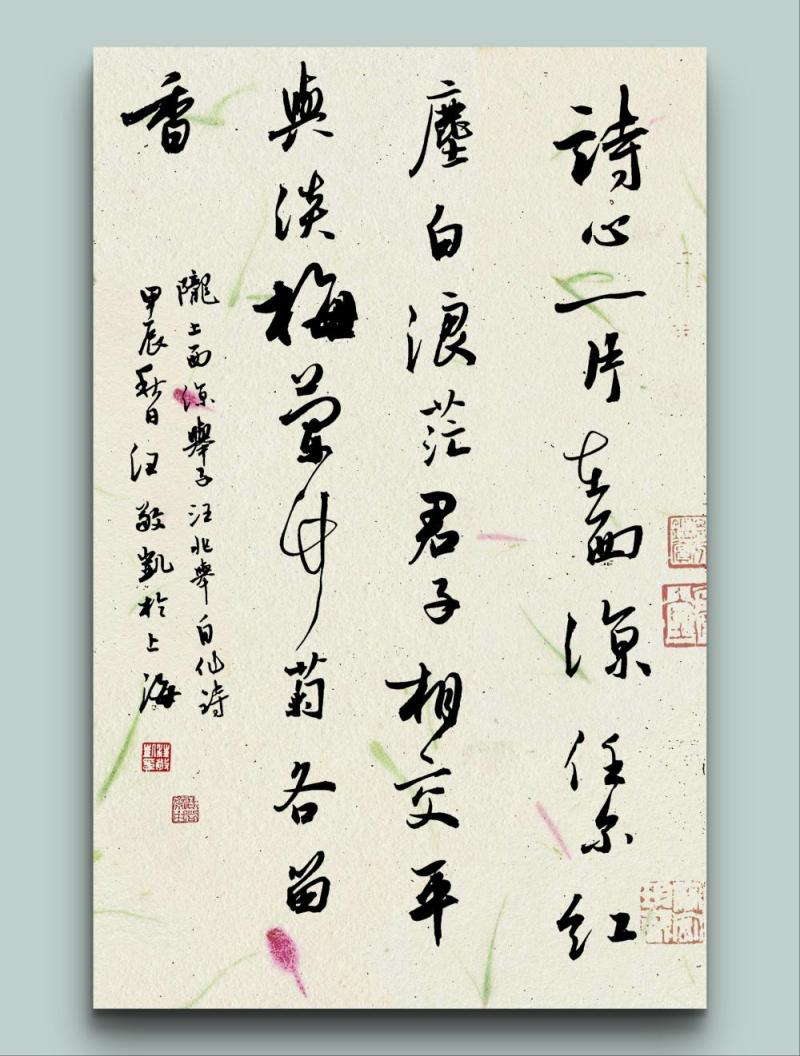 詩心一片在西涼任尔紅
塵白浪茫君子相交平
與淡梅蘭竹菊各留
香
隴上西涼舉子汪兆舉自作詩
甲辰秋日汪敬凱於上海